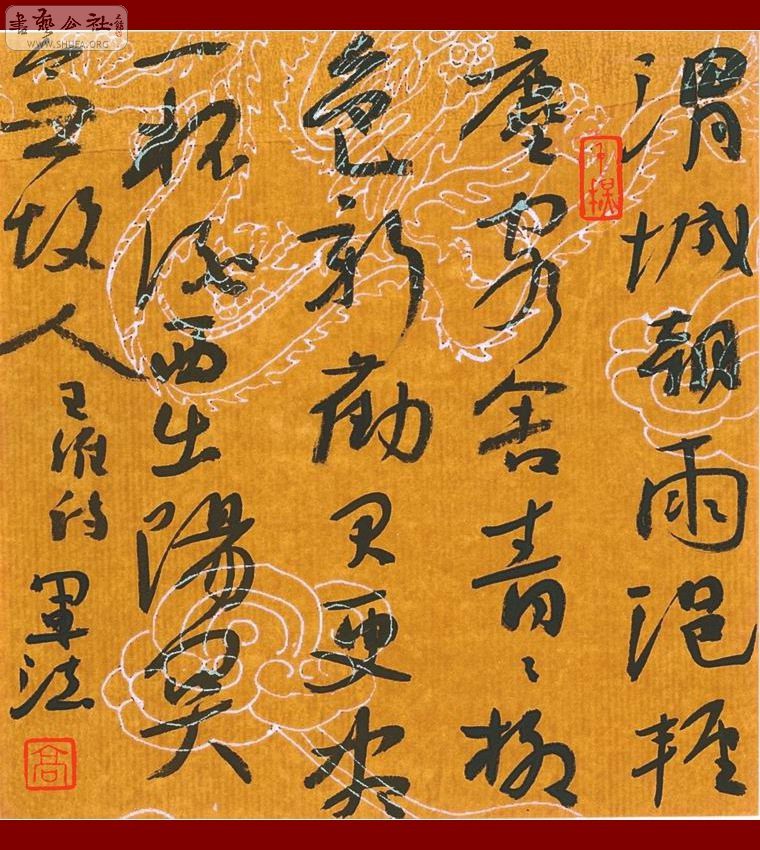 書藝公社
WWW.SHUFA.ORG
渭城朝雨浥輕
塵客舍青々柳
色新勸君更盡
一杯酒西出陽關
無故人
王維詩
軍法
高